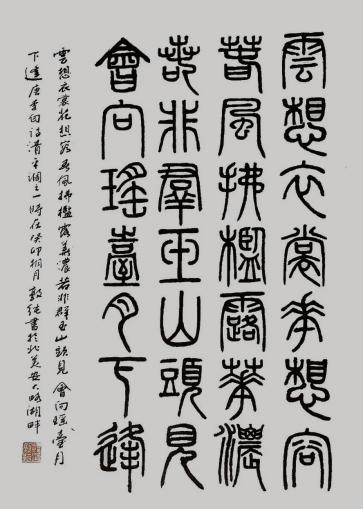 雲想衣裳華想容
春風拂檻露華濃
若非羣玉山頭見
會向瑤臺月下逢
雲想衣裳花想容春風拂檻露華濃若非群玉山頭見會向瑤臺月
下逢唐李白詩清平調之一時在癸卯桐月書於北美安大略湖畔